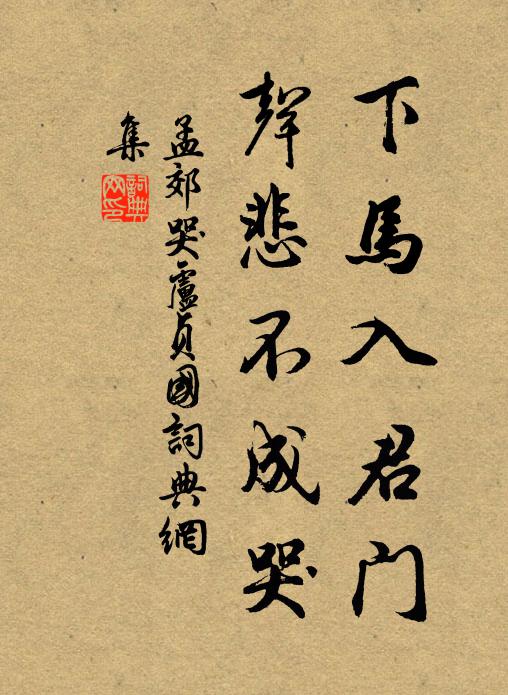 下馬入君門
聲悲不成哭
孟郊哭盧貞國詞典網
集
詞典
网印